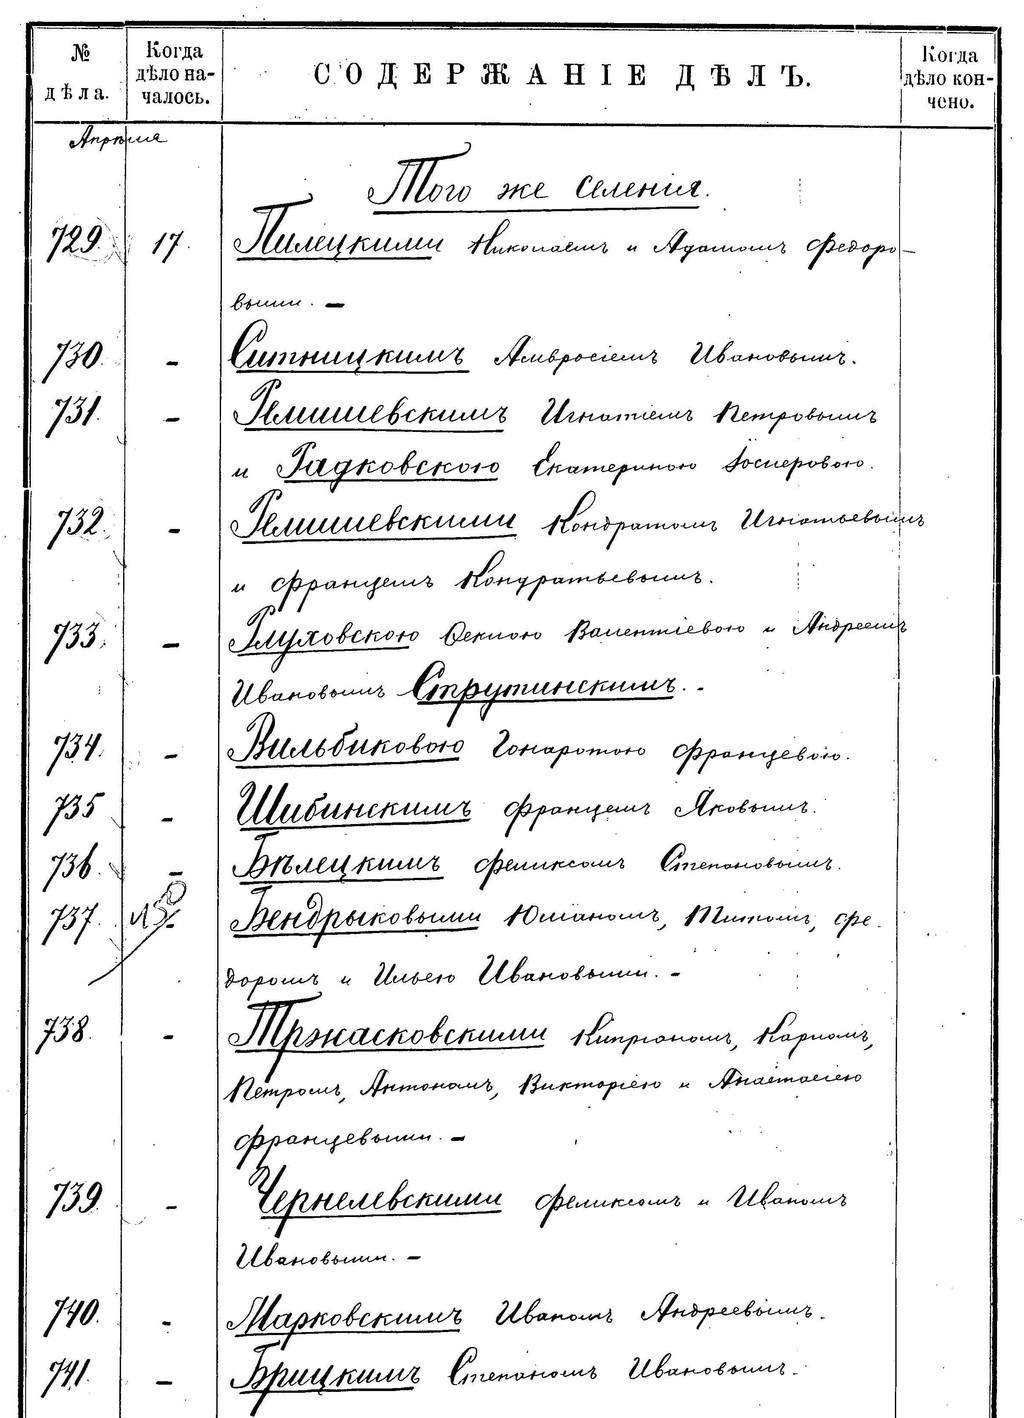 № дѣла.
Когда дѣло началось.
СОДЕРЖАНІЕ ДѢЛЪ.
Когда дѣло кончено.
Апрѣля
Того же селенія.
729. 17. Пилецкими Николаемъ и Адамомъ Федоро-
выми. —
730. - Ситницкимъ Амвросіемъ Ивановымъ.
731. - Ремишевскимъ Игнатіемъ Петровымъ
и Гадковскою Екатериною Іосиеровою.
732. - Ремишевскими Кондратомъ Игнатьевымъ
и Францемъ Кондратьевымъ.
733. - Глуховскою Феклою Валентіевою и Андреемъ
Ивановымъ Струтинскимъ. -
734. - Вильбиковою Гонаратою Францевою.
735 - Шибинскимъ Францемъ Яковымъ.
736. - Бѣлецкимъ Феликсомъ Степановымъ.
737. Бендрыковыми Юліаномъ, Титомъ, Фе-
доромъ и Ильею Ивановыми. -
738. - Тржасковскими Кипріаномъ, Карпомъ,
Петромъ, Антономъ, Викторіею и Анастасіею
Францевыми. -
739. - Чернелевскими Феликсомъ и Иваномъ
Ивановыми. -
740. - Марковскимъ Иваномъ Андреевымъ.
741. - Брицкимъ Степаномъ Ивановымъ.